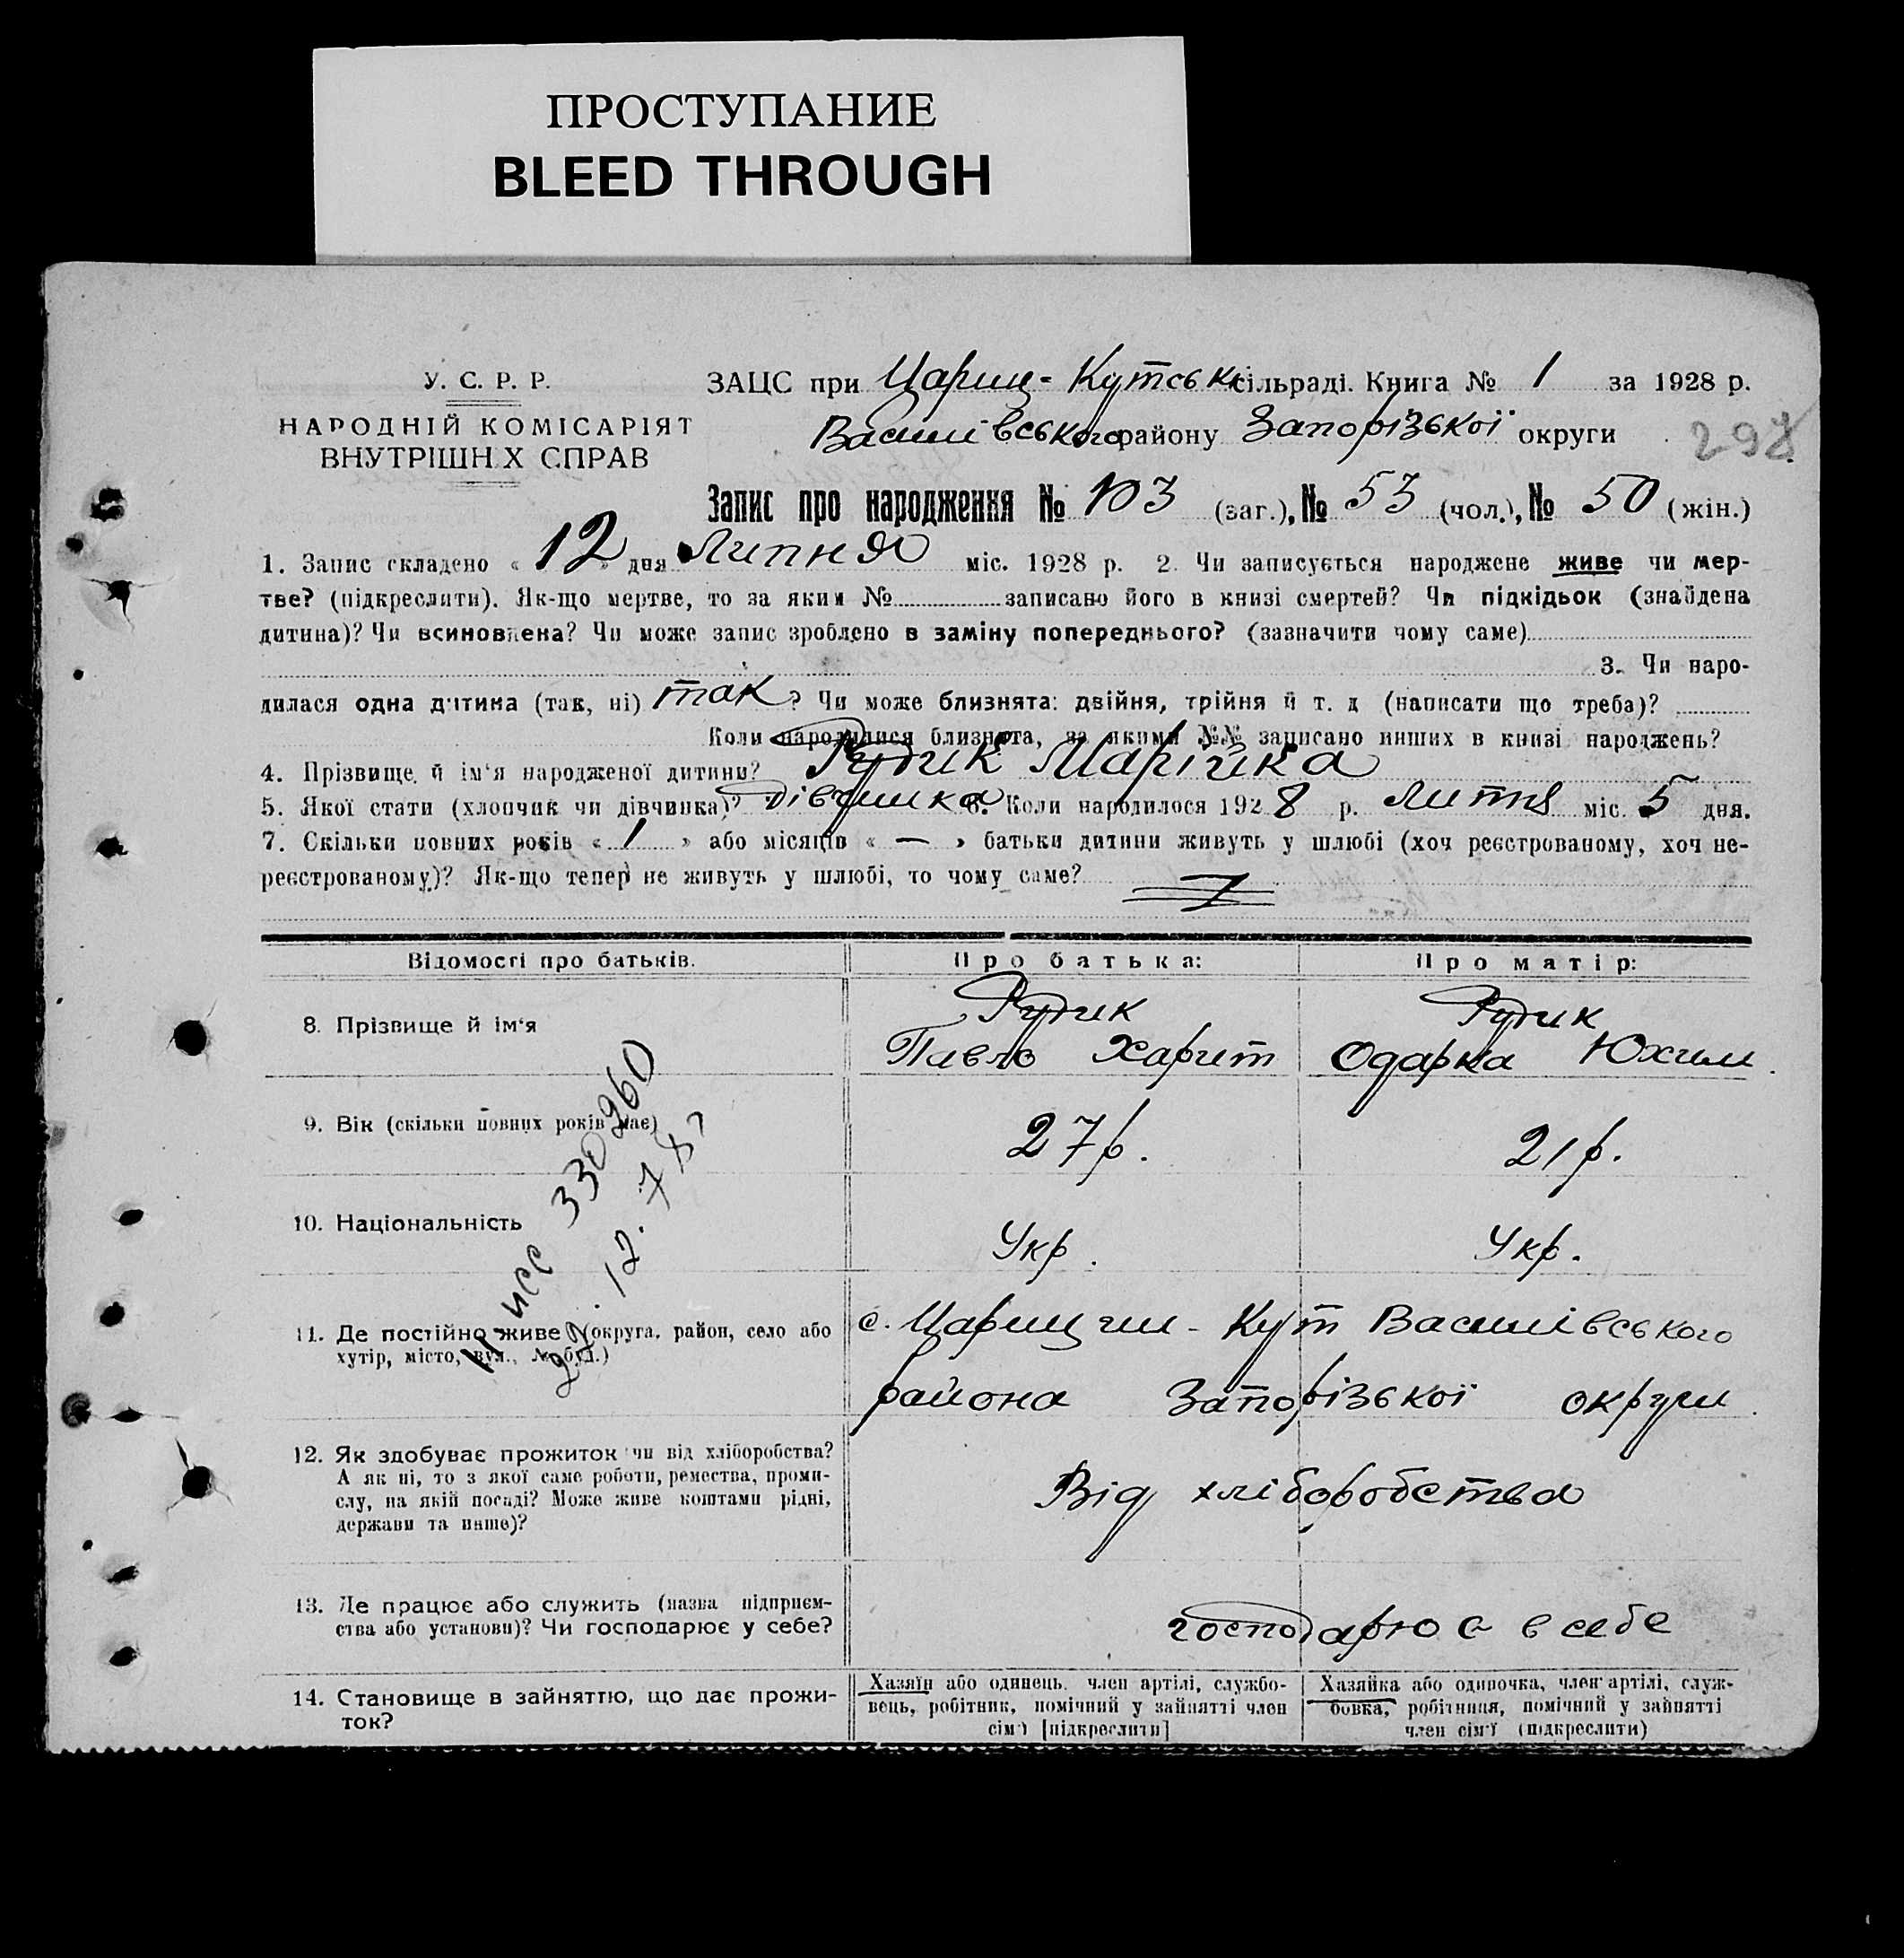 ПРОСТУПАНИЕ
BLEED THROUGH
У. С. Р. Р.
НАРОДНІЙ КОМІСАРІЯТ
ВНУТРІШН Х СПРАВ
ЗАЦС при Цариц-Кутськ сільраді. Книга № 1 за 1928 р.
Василівського району Запорізької округи
298
Запис про народження № 103 (заг.), № 53 (чол.), № 50 (жін.)
1. Запис складено « 12 » дня Липня міс. 1928 р. 2. Чи записується народжене живе чи мер-
тве? (підкреслити). Як-що мертве, то за яким № записано його в книзі смертей? Чи підкідьок (знайдена
дитина)? Чи всиновлена? Чи може запис зроблено в заміну попереднього? (зазначити чому саме)
3. Чи наро-
дилася одна дитина (так, ні) так? Чи може близнята: двійня, трійня й т. д (написати що треба)?
Коли народилися близнята, за якими №№ записано инших в книзі народжень?
4. Прізвище й ім'я народженої дитини? Рудик Марійка
5. Якої стати (хлопчик чи дівчинка)? дівчинка 6. Коли народилося 1928 р. Липня міс. 5 дня.
7. Скільки повних років « 1 » або місяців « — » батьки дитини живуть у шлюбі (хоч реєстрованому, хоч не-
реєстрованому)? Як-що тепер не живуть у шлюбі, то чому саме?
Відомості про батьків. Про батька: Про матір:
8. Прізвище й ім'я Рудик Рудик
Павло Харит Одарка Юхим
9. Вік (скільки повних років має) 27 р. 21 р.
10. Національність Укр. Укр.
330960
11. Де постійно живе (округа, район, село або
хутір, місто, вул., № буд.)
с. Царицин-Кут Василівського
района Запорізької округи
12. Як здобуває прожиток чи від хліборобства?
А як ні, то з якої саме роботи, ремества, проми-
слу, на якій посаді? Може живе коштами рідні,
держави та инше)?
Від хліборобства
13. Де працює або служить (назва підприєм-
ства або установи)? Чи господарює у себе?
господарює в себе
14. Становище в зайняттю, що дає прожи-
ток?
Хазяїн або одинець, член артілі, службо-
вець, робітник, помічний у зайнятті член
сім'ї [підкреслити]
Хазяйка або одиночка, член артілі, служ-
бовка, робітниця, помічний у зайнятті
член сім'ї (підкреслити)